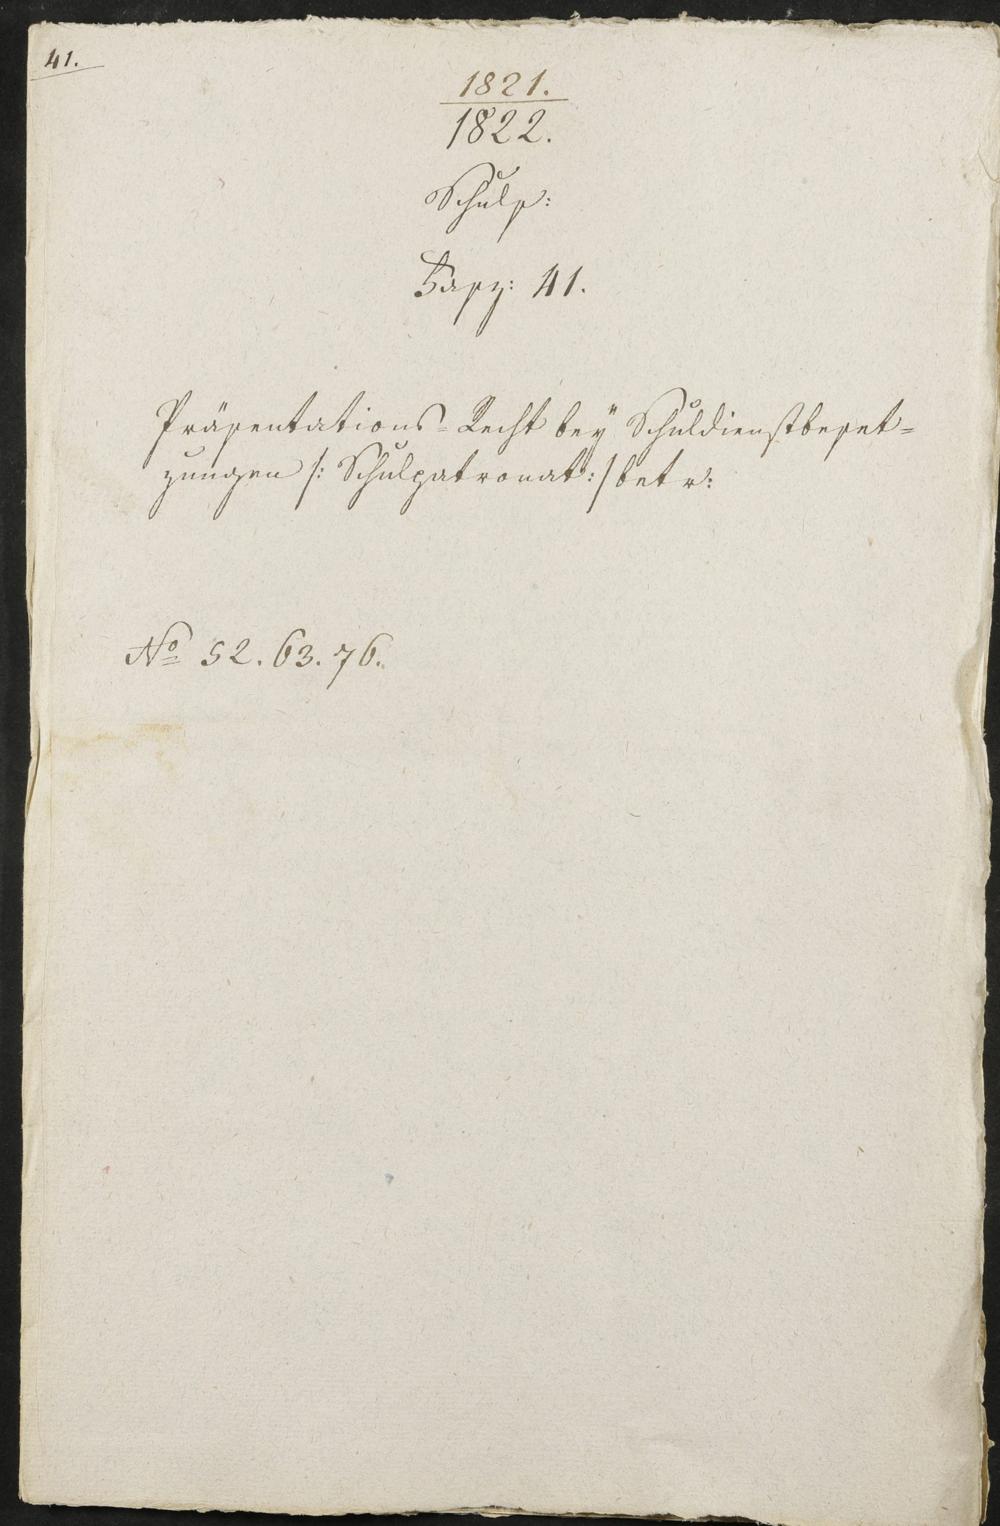 41.
1821.
1822.
Schuls:
Fasz: 41.
Präsentations-Recht bey Schuldienstbeset=
zungen /: Schulpatronat :/ betr:
No 52. 63. 76.